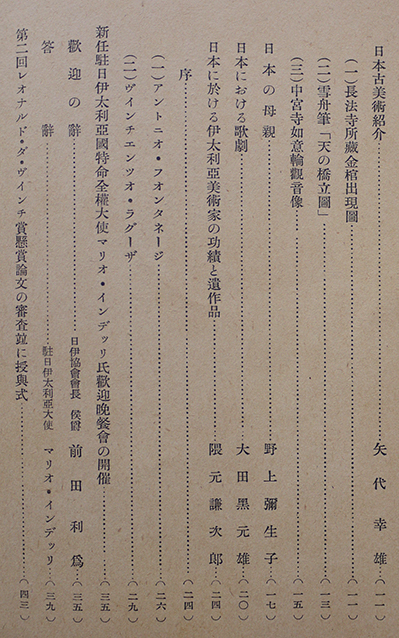 日本古美術紹介……矢代幸雄…(一一)
(一)長法寺所藏金棺出現圖……(一一)
(二)雪舟筆「天の橋立圖」……(一三)
(三)中宮寺如意輪觀音像……(一五)
日本の母親……野上彌生子…(一七)
日本における歌劇……大田黑元雄…(二〇)
日本に於ける伊太利亞美術家の功績と遺作品……隈元謙次郎…(二四)
序……(二四)
(一)アントニオ・フオンタネージ……(二六)
(二)ヴインチエンツオ・ラグーザ……(二九)
新任駐日伊太利亞國特命全權大使マリオ・インデッリ氏歡迎晩餐會の開催……(三五)
歡迎の辭 日伊協會會長 侯爵 前田利爲…(三五)
答辭 駐日伊太利亞大使 マリオ・インデッリ…(三九)
第二回レオナルド・ダ・ヴインチ賞懸賞論文の審査竝に授與式……(四三)